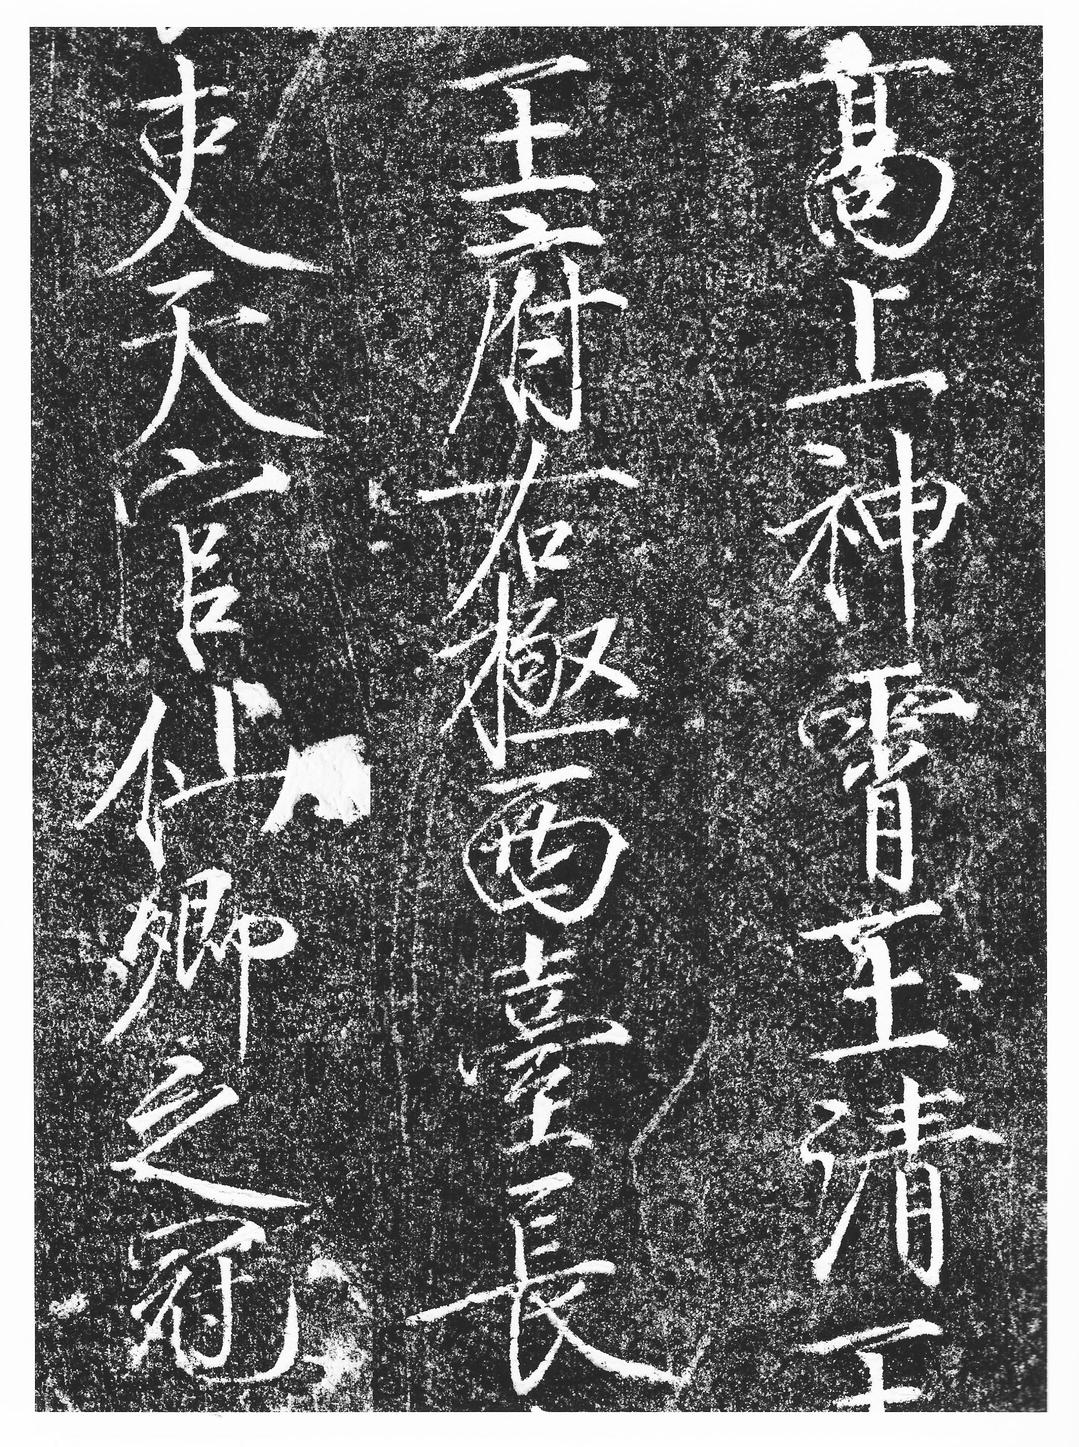 高上神霄玉清王
王府右極西臺長
吏天官仙卿之冠